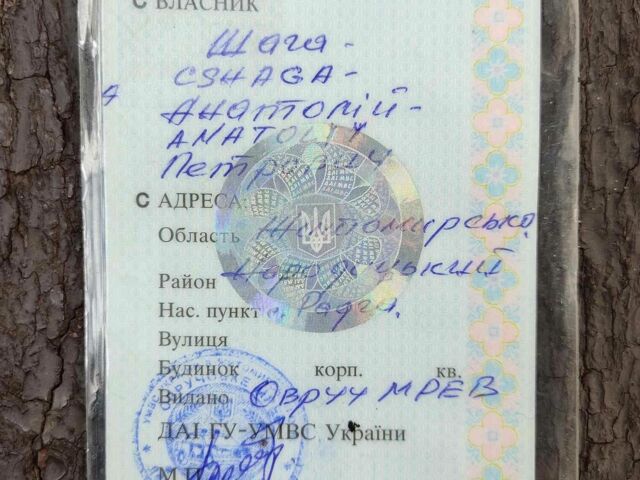 С ВЛАСНИК
Шага -
CSHAGA -
Анатолій -
ANATOLIY
Петрович
С АДРЕСА:
Область Житомирська
Район Народицький
Нас. пункт с.
Вулиця
Будинок корп. кв.
Видано Овруч МРЕВ
ДАІ ГУ-УМВС України
М.П.